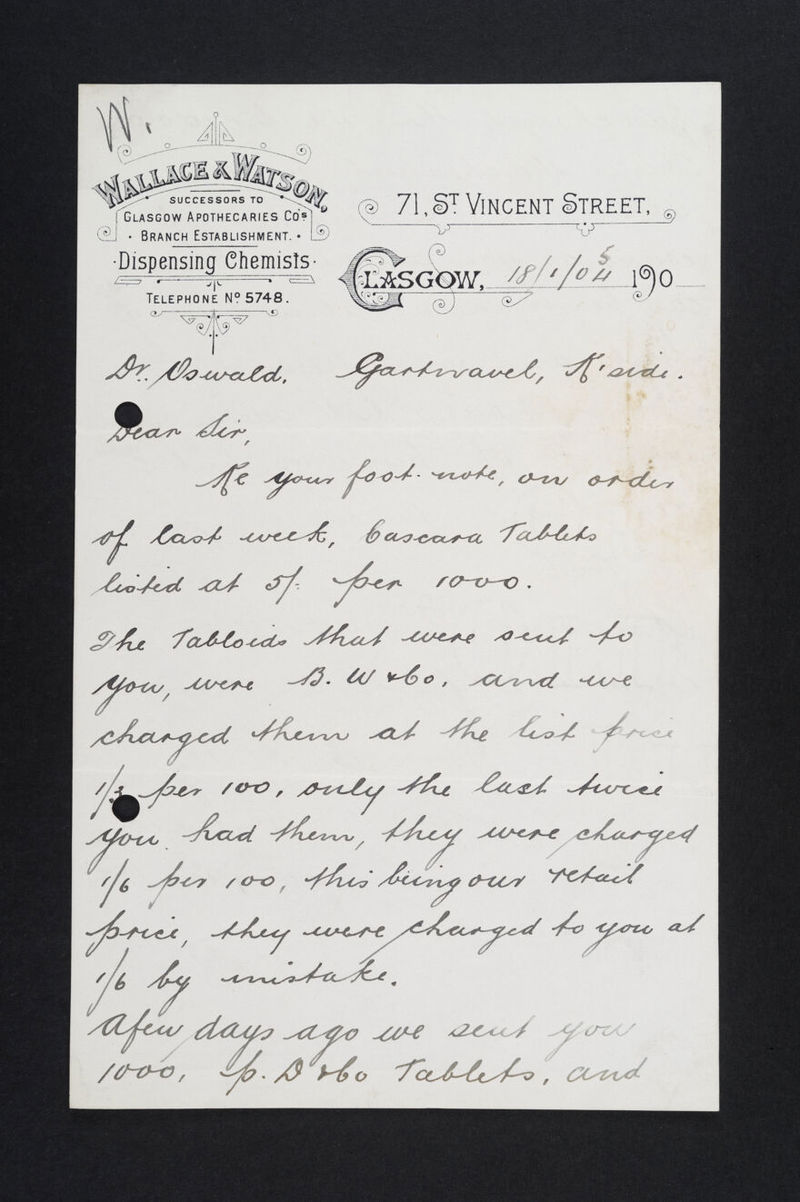 W.
WALLACE & WATSON,
SUCCESSORS TO
GLASGOW APOTHECARIES Co's
· BRANCH ESTABLISHMENT. ·
· Dispensing Chemists ·
TELEPHONE No 5748.
71, ST VINCENT STREET,
GLASGOW, 18/1/05 190
Dr. Oswald, Gartnavel, K'side.
Dear Sir,
Re your foot-note, on order
of last week, Cascara Tablets
listed at 5/- per 1000.
The Tabloids that were sent to
you, were B. W & Co, and we
charged them at the list price
1/3 per 100, only the last twice
you had them, they were charged
1/6 per 100, this being our retail
price, they were charged to you at
1/6 by mistake.
A few days ago we sent you
1000, P. D & Co Tablets, and